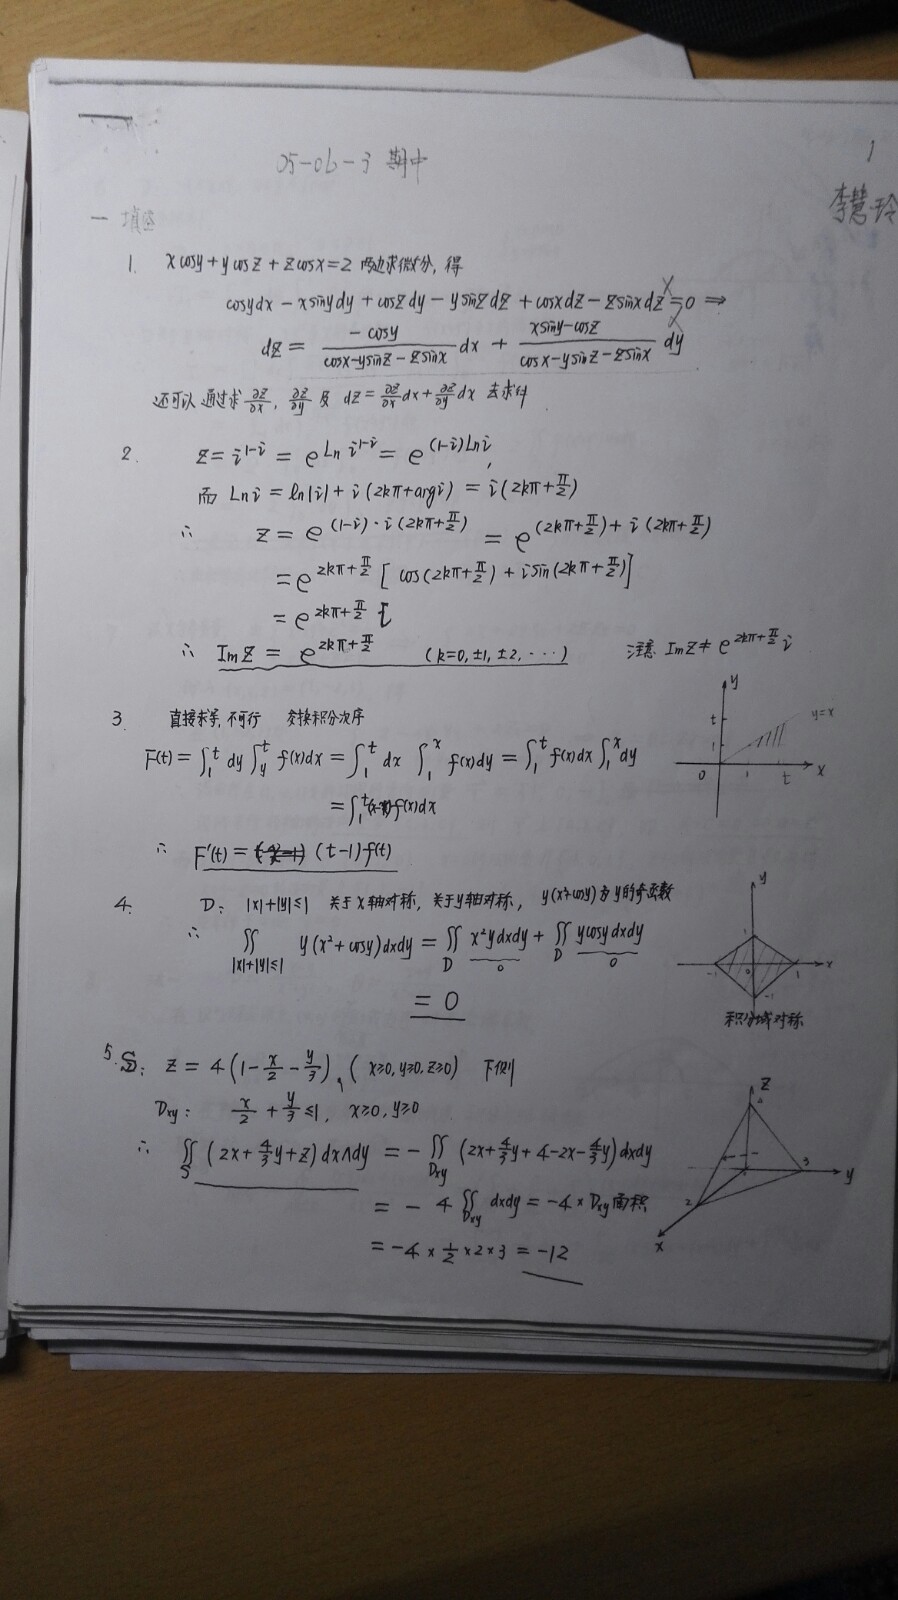 1
05-06-3 期中
李慧玲
一 填空
1. x cosy + y cosz + z cosx = 2 两边求微分, 得
cosydx - xsinydy + coszdy - ysinzdz + cosxdz - zsinxdz = 0 ⇒
dz = \frac{-cosy}{cosx-ysinz-zsinx} dx + \frac{xsiny-cosz}{cosx-ysinz-zsinx} dy
还可以通过求 ∂z/∂x, ∂z/∂y 及 dz = ∂z/∂x dx + ∂z/∂y dx 去求
2. z = i^{1-i} = e^{Ln i^{1-i}} = e^{(1-i)Lni},
而 Lni = ln|i| + i(2kπ+argi) = i(2kπ+π/2)
∴ z = e^{(1-i)·i(2kπ+π/2)} = e^{(2kπ+π/2)+i(2kπ+π/2)}
= e^{2kπ+π/2} [cos(2kπ+π/2) + isin(2kπ+π/2)]
= e^{2kπ+π/2} i
∴ Imz = e^{2kπ+π/2} (k=0, ±1, ±2, ···) 注意 Imz ≠ e^{2kπ+π/2} i
3. 直接求导, 不可行 变换积分次序
F(t) = ∫_1^t dy ∫_y^t f(x)dx = ∫_1^t dx ∫_1^x f(x)dy = ∫_1^t f(x)dx ∫_1^x dy
= ∫_1^t (x-1)f(x)dx
∴ F'(t) = (t-1)f(t)
y
t
1
0
1
t
x
y=x
4. D: |x|+|y|≤1 关于x轴对称, 关于y轴对称, y(x²+cosy)为y的奇函数
∴ ∬_{|x|+|y|≤1} y(x²+cosy)dxdy = ∬_D x²ydxdy + ∬_D ycosydxdy
0 0
= 0
y
1
-1
0
1
x
-1
积分域对称
5. S: z = 4(1 - x/2 - y/3), (x≥0, y≥0, z≥0) 下侧
Dxy: x/2 + y/3 ≤ 1, x≥0, y≥0
∴ ∬_S (2x + 4/3 y + z)dx∧dy = -∬_{Dxy} (2x + 4/3 y + 4 - 2x - 4/3 y)dxdy
= -4∬_{Dxy} dxdy = -4 × Dxy面积
= -4 × 1/2 × 2 × 3 = -12
z
3
y
2
x